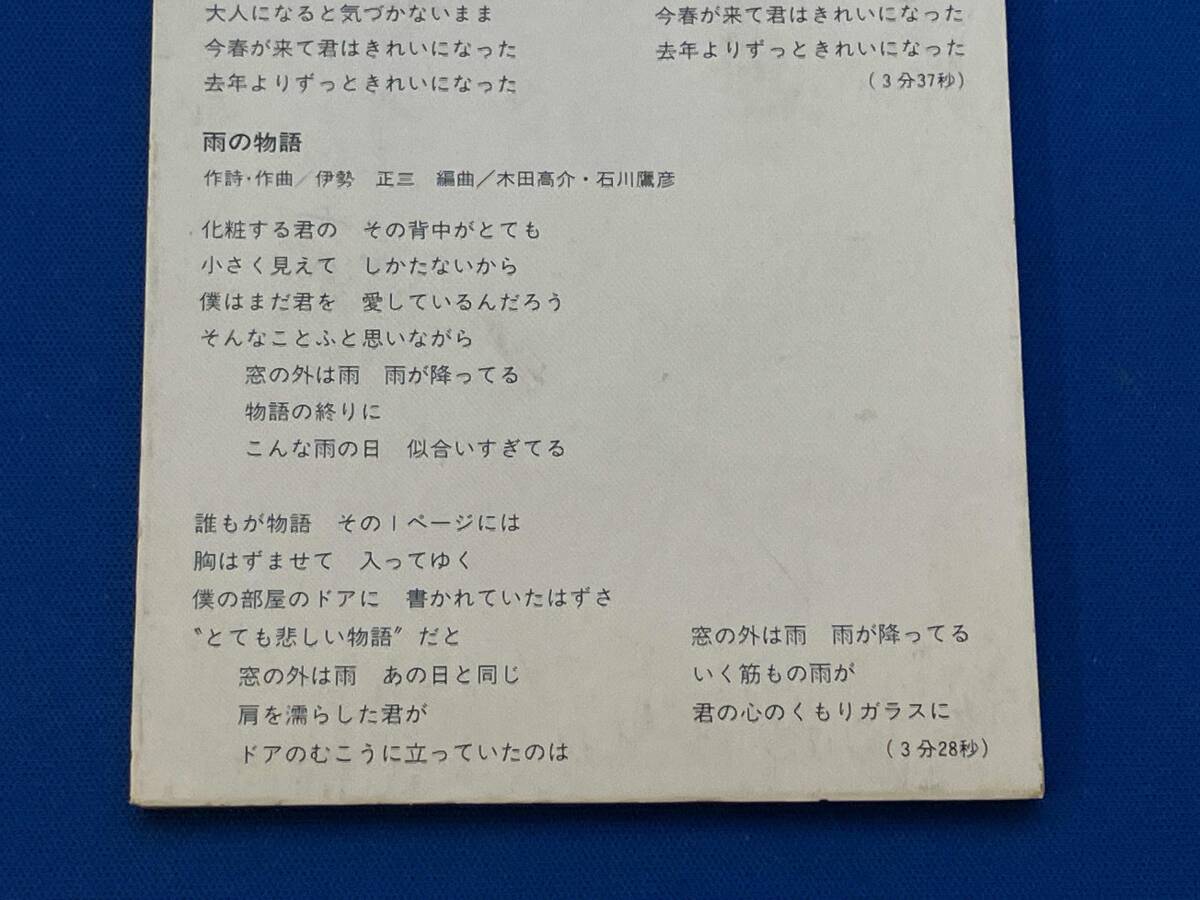 大人になると気づかないまま
今春が来て君はきれいになった
去年よりずっときれいになった
今春が来て君はきれいになった
去年よりずっときれいになった
(3分37秒)
雨の物語
作詩・作曲/伊勢　正三　編曲/木田高介・石川鷹彦
化粧する君の　その背中がとても
小さく見えて　しかたないから
僕はまだ君を　愛しているんだろう
そんなことふと思いながら
窓の外は雨　雨が降ってる
物語の終りに
こんな雨の日　似合いすぎてる
誰もが物語　その1ページには
胸はずませて　入ってゆく
僕の部屋のドアに　書かれていたはずさ
〝とても悲しい物語〟だと
窓の外は雨　あの日と同じ
肩を濡らした君が
ドアのむこうに立っていたのは
窓の外は雨　雨が降ってる
いく筋もの雨が
君の心のくもりガラスに
(3分28秒)